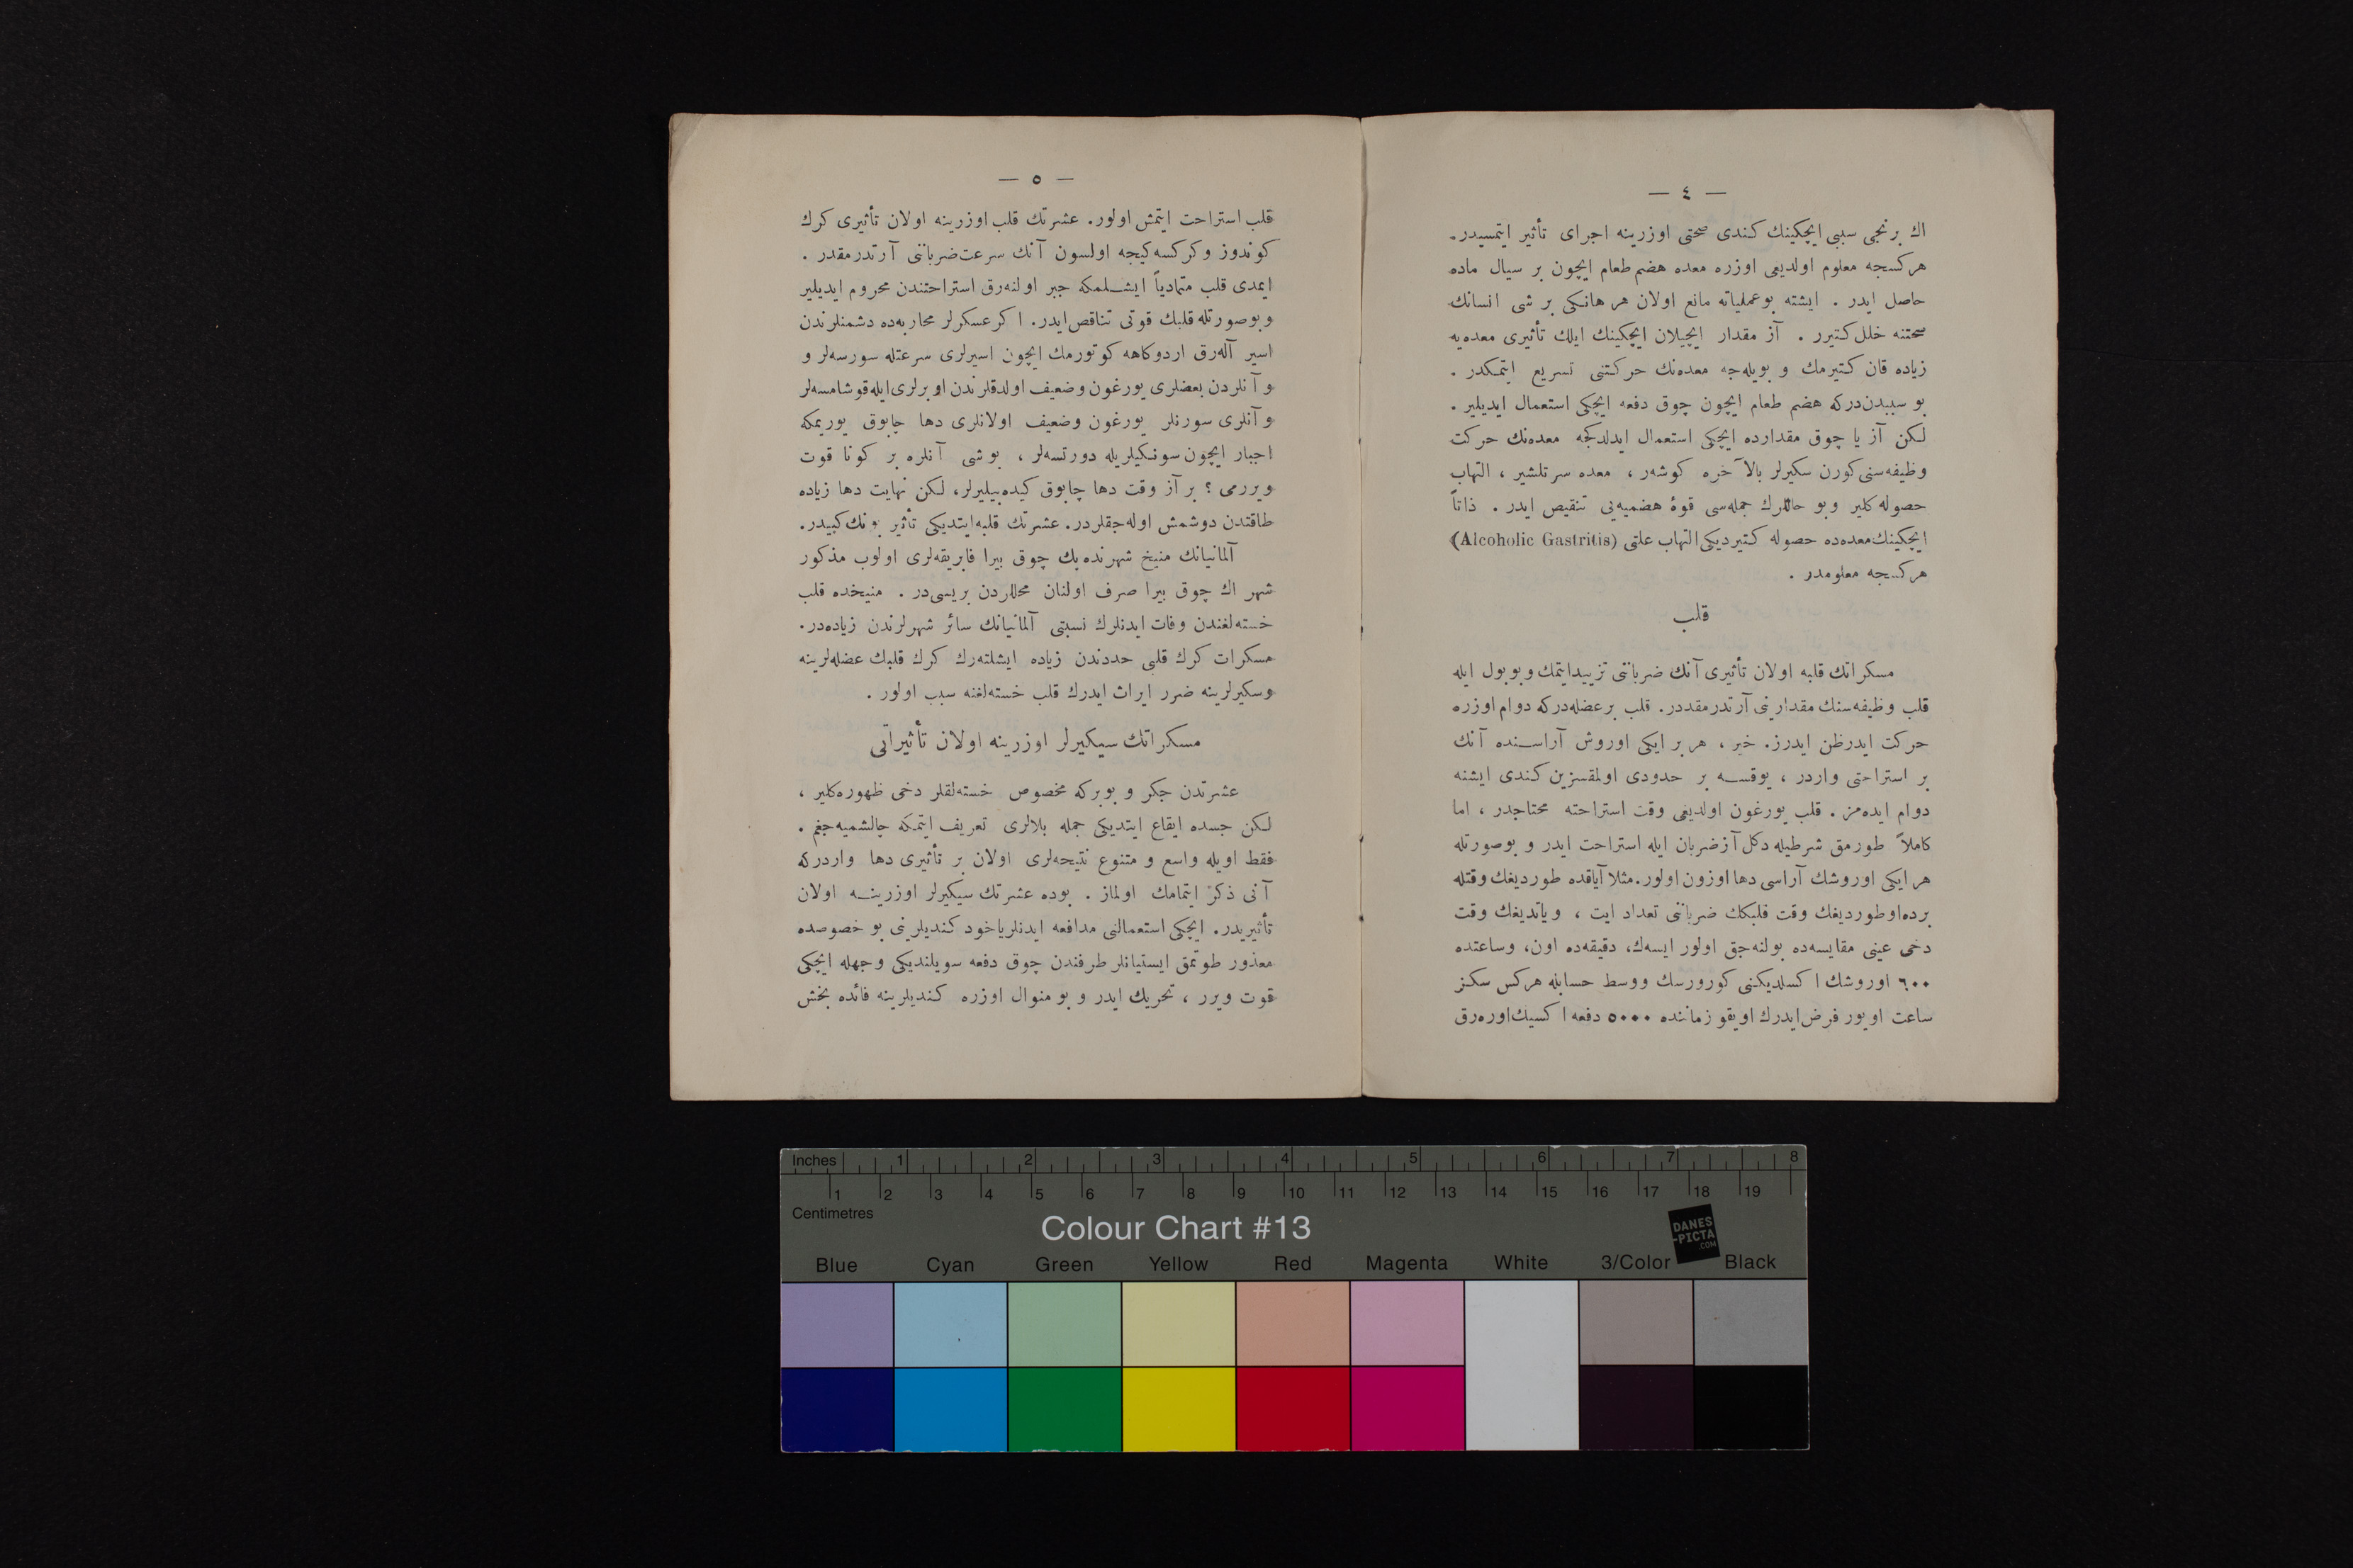 — ٤ —
اك برنجی سببی ایچكینك كندی صحتی اوزرینه اجرای تأثیر ایتمسیدر.
هركسجه معلوم اولدیغی اوزره معده هضم طعام ایچون بر سیال ماده
حاصل ایدر . ایشته بوعملیاته مانع اولان هر هانكی بر شی انسانك
صحتنه خلل كتیرر . آز مقدار ایچیلان ایچكینك ایلك تأثیری معده‌یه
زیاده قان كتیرمك و بویله‌جه معده‌نك حركتنی تسریع ایتمكدر .
بو سببدن‌دركه هضم طعام ایچون چوق دفعه ایچكی استعمال ایدیلیر .
لكن آز یا چوق مقدارده ایچكی استعمال ایدلدكجه معده‌نك حركت
وظیفه‌سنی كورن سكیرلر بالآخره كوشه‌ر ، معده سرتلشیر ، التهاب
حصوله كلیر وبو حاللرك جمله‌سی قوهٔ هضمیه‌یی تنقیص ایدر . ذاتاً
ایچكینك معده‌ده حصوله كتیردیكی التهاب علتی (Alcoholic Gastritis)
هركسجه معلومدر .
قلب
مسكراتك قلبه اولان تأثیری آنك ضرباننی تزییدایتمك و بو یول ایله
قلب وظیفه‌سنك مقدارینی آرتدرمقددر. قلب برعضله‌دركه دوام اوزره
حركت ایدرظن ایدرز. خیر ، هر بر ایكی اوروش آراسنده آنك
بر استراحتی واردر ، یوقسه بر حدودی اولمقسزین كندی ایشنه
دوام ایده‌مز . قلب یورغون اولدیغی وقت استراحته محتاجدر ، اما
كاملاً طورمق شرطیله دكل آزضربان ایله استراحت ایدر و بوصورتله
هر ایكی اوروشك آراسی دها اوزون اولور.مثلا آیاقده طوردیغك وقتله
برده‌اوطوردیغك وقت قلبكك ضرباننی تعداد ایت ، ویاتدیغك وقت
دخی عینی مقایسه‌ده بولنه‌جق اولور ایسه‌ك، دقیقه‌ده اون، وساعتده
٦٠٠ اوروشك اكسلدیكنی كورورسك ووسط حسابله هركس سكز
ساعت اویور فرض‌ایدرك اویقو زماننده ٥٠٠٠ دفعه اكسیك‌اوره‌رق
— ٥ —
قلب استراحت ایتمش اولور. عشرتك قلب اوزرینه اولان تأثیری كرك
كوندوز وكركسه كیجه اولسون آنك سرعت‌ضرباننی آرتدرمقدر .
ایمدی قلب متمادیاً ایشلمكه جبر اولنه‌رق استراحتندن محروم ایدیلیر
وبوصورتله قلبك قوتی تناقص‌ایدر. اكرعسكرلر محاربه‌ده دشمنلرندن
اسیر آله‌رق اردوكاهه كوتورمك ایچون اسیرلری سرعتله سورسه‌لر و
و آنلردن بعضلری یورغون وضعیف اولدقلرندن اوبرلری‌ایله‌قوشامسه‌لر
و آنلری سورنلر یورغون وضعیف اولانلری دها چابوق یوریمكه
اجبار ایچون سونكیلریله دورتسه‌لر ، بو شی آنلره بر كونا قوت
ویررمی ؟ بر آز وقت دها چابوق كیده‌بیلیرلر، لكن نهایت دها زیاده
طاقتدن دوشمش اوله‌جقلردر. عشرتك قلبه‌ایتدیكی تأثیر بونك كبیدر.
آلمانیانك منیخ شهرنده پك چوق بیرا فابریقه‌لری اولوب مذكور
شهر اك چوق بیرا صرف اولنان محللردن بریسی‌در . منیخده قلب
خسته‌لغندن وفات ایدنلرك نسبتی آلمانیانك سائر شهرلرندن زیاده‌در.
مسكرات كرك قلبی حددندن زیاده ایشلته‌رك كرك قلبك عضله‌لرینه
وسكیرلرینه ضرر ایراث ایدرك قلب خسته‌لغنه سبب اولور .
مسكراتك سیكیرلر اوزرینه اولان تأثیراتی
عشرتدن جكر و بوبركه مخصوص خسته‌لقلر دخی ظهوره‌كلیر ،
لكن جسده ایقاع ایتدیكی جمله بلالری تعریف ایتمكه چالشمیه‌جغم .
فقط اویله واسع و متنوع نتیجه‌لری اولان بر تأثیری دها واردركه
آنی ذكر ایتمامك اولماز . بوده عشرتك سیكیرلر اوزرینه اولان
تأثیریدر. ایچكی استعمالنی مدافعه ایدنلریاخود كندیلرینی بو خصوصده
معذور طوتمق ایستیانلر طرفندن چوق دفعه سویلندیكی وجهله ایچكی
قوت ویرر ، تحریك ایدر و بو منوال اوزره كندیلرینه فائده بخش
Inches 1 2 3 4 5 6 7 8
1 2 3 4 5 6 7 8 9 10 11 12 13 14 15 16 17 18 19
Centimetres
Colour Chart #13
DANES
-PICTA
.COM
Blue Cyan Green Yellow Red Magenta White 3/Color Black